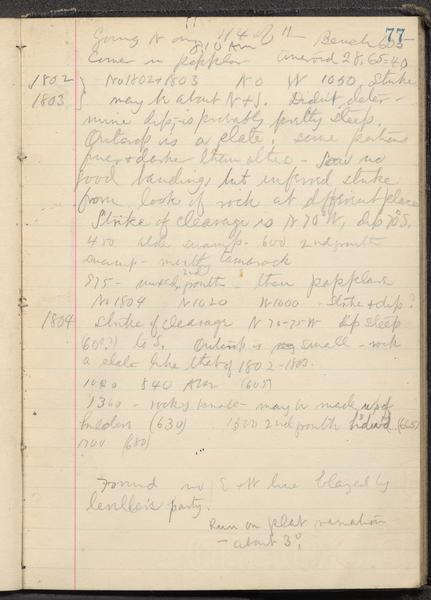 77
Going N on 1/4 of 11 Bench 600
8 10 AM
Corner in popplar Aneroid 28.65=40
1802 No 1802+1803 N 0 W 1050, Strike
1803 may be about N+S. Didn't deter-
mine dip, is probably pretty steep.
Outcrop is a slate, some portions
finer + darker than others - Saw no
good banding but inferred strike
from look of rock at different places
Strike of cleavage is N 70° W, dip 70° S.
450 alder swamp - 600 2nd growth
swamp - mostly tamarack
875 - mixed 2nd growth - then popplars
No 1804 N 1020 W 1000 - Strike + dip?
1804 Strike of cleavage N 70-75 W Dip steep
60(?) to S. Outcrop is small - rock
a slate like that of 1802-1803.
1020 840 Aner (605)
1360 - rocky - may be made up of
bulders (630) 1500 2nd growth (665)
1700 (680)
Found no E + W line blazed by
party.
Run on plat variation
- about 3°,